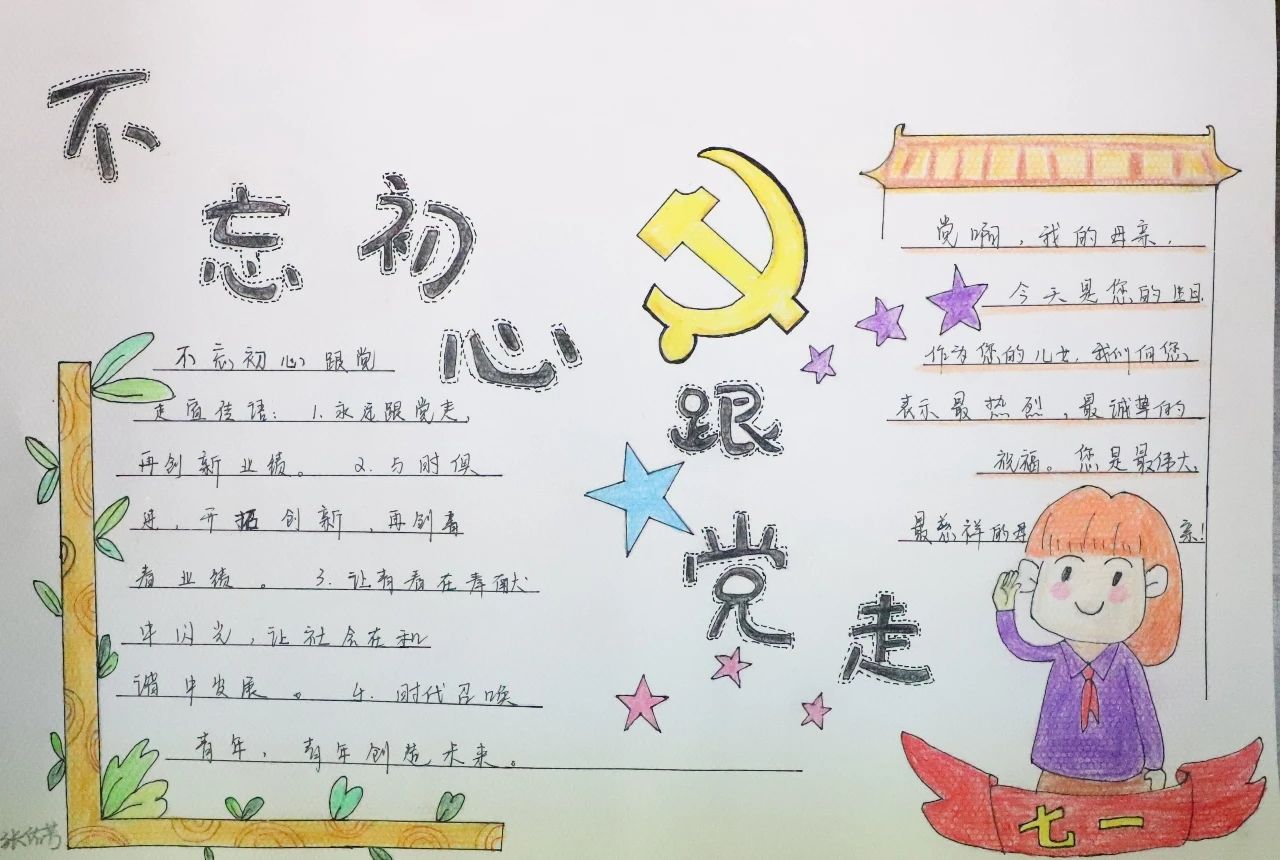 不忘初心跟党走
不忘初心跟党
走宣传语：1.永远跟党走，
再创新业绩。 2.与时俱
进，开拓创新，再创青
春业绩。 3.让青春在奉献
中闪光，让社会在和
谐中发展。 4.时代召唤
青年，青年创造未来。
党啊，我的母亲，
今天是您的生日
作为您的儿女，我们向您，
表示最热烈，最诚挚的
祝福。您是最伟大，
最慈祥的母亲！
七一